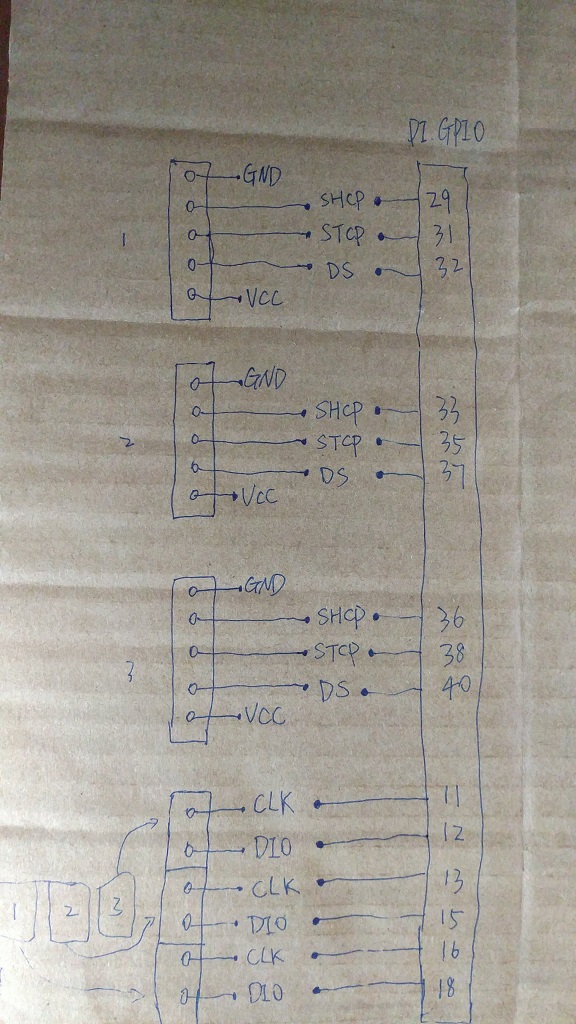 PI GPIO
GND
SHCP 29
1 STCP 31
DS 32
VCC
GND
SHCP 33
2 STCP 35
DS 37
VCC
GND
SHCP 36
3 STCP 38
DS 40
VCC
CLK 11
DIO 12
CLK 13
1 2 3
DIO 15
CLK 16
DIO 18